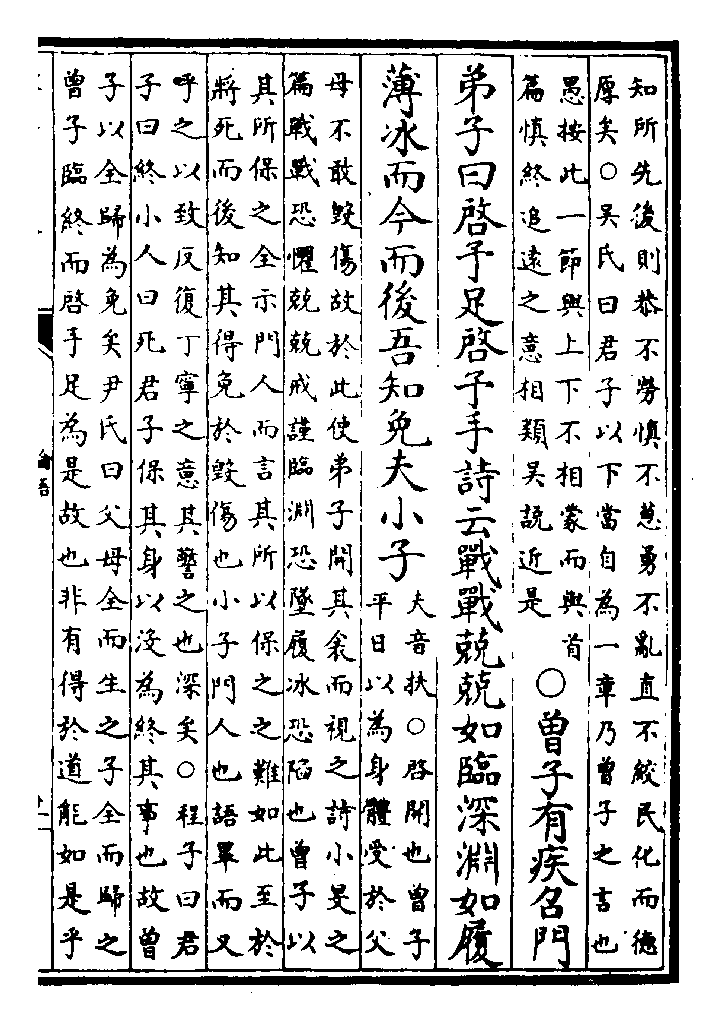 知所先後則恭不勞慎不葸勇不亂直不絞民化而德
厚矣○吳氏曰君子以下當自為一章乃曾子之言也
愚按此一節與上下不相蒙而與首
篇慎終追遠之意相類吳說近是
○曾子有疾召門
弟子曰啓予足啓予手詩云戰戰兢兢如臨深淵如履
薄冰而今而後吾知免夫小子
夫音扶○啓開也曾子
平日以為身體受於父
母不敢毀傷故於此使弟子開其衾而視之詩小旻之
篇戰戰恐懼兢兢戒謹臨淵恐墜履冰恐陷也曾子以
其所保之全示門人而言其所以保之之難如此至於
將死而後知其得免於毀傷也小子門人也語畢而又
呼之以致反復丁寧之意其警之也深矣○程子曰君
子曰終小人曰死君子保其身以沒為終其事也故曾
子以全歸為免矣尹氏曰父母全而生之子全而歸之
曾子臨終而啓手足為是故也非有得於道能如是乎
論語